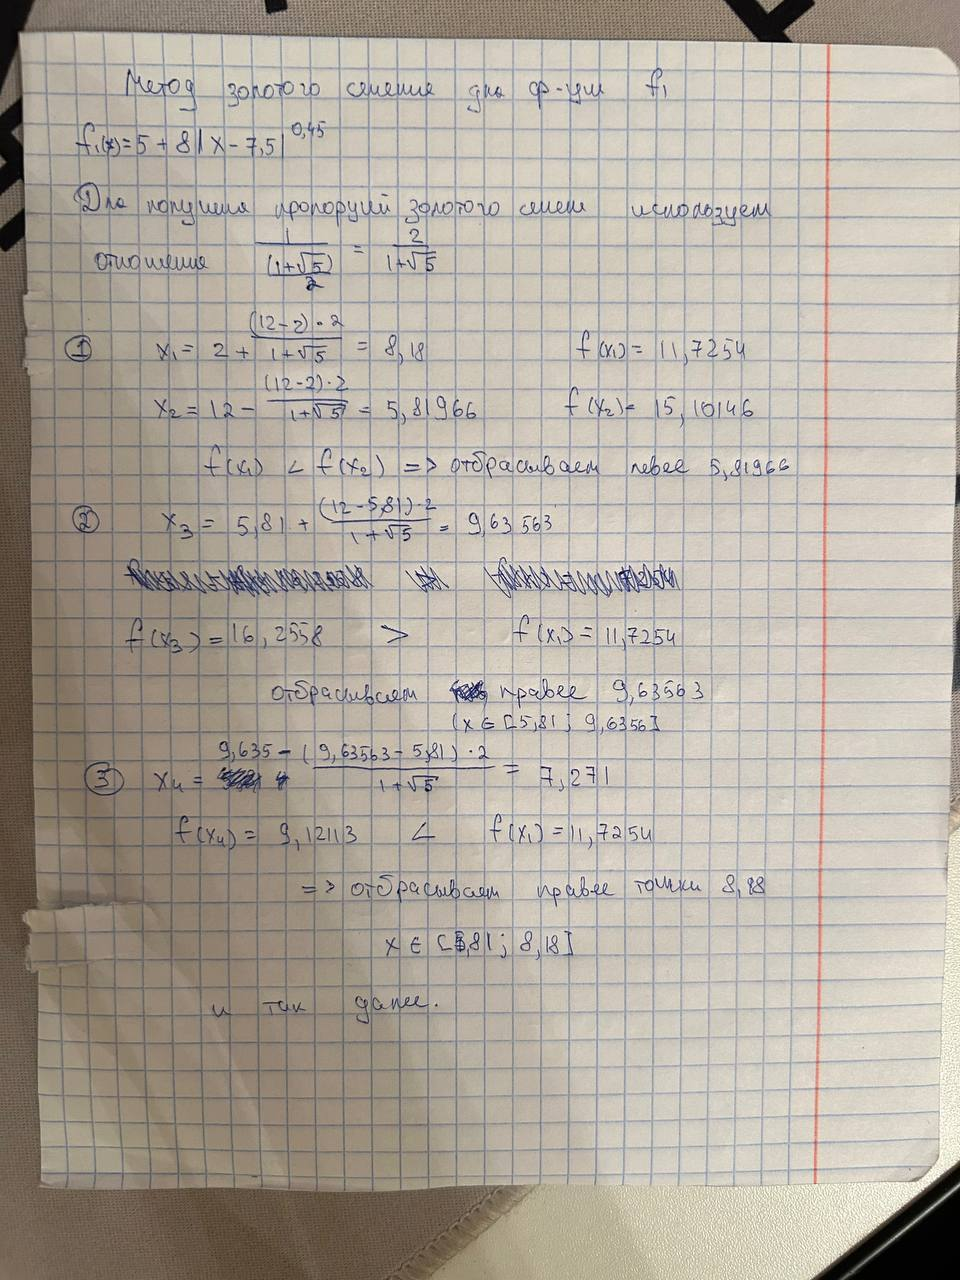 Метод золотого сечения для ф-ции f₁
f₁(x) = 5 + 8|x - 7,5|^0,45
Для получения пропорций золотого сечен используем
отношения 1/((1+√5)/2) = 2/(1+√5)
① x₁ = 2 + (12-2)·2/(1+√5) = 8,18 f(x₁) = 11,7254
x₂ = 12 - (12-2)·2/(1+√5) = 5,81966 f(x₂) = 15,10146
f(x₁) < f(x₂) => отбрасываем левее 5,81966
② x₃ = 5,81 + (12-5,81)·2/(1+√5) = 9,63563
f(x₃) = 16,2558 > f(x₁) = 11,7254
отбрасываем правее 9,63563
(x ∈ [5,81; 9,6356]
③ x₄ = 9,635 - (9,63563 - 5,81)·2/(1+√5) = 7,271
f(x₄) = 9,12113 < f(x₁) = 11,7254
=> отбрасываем правее точки 8,18
x ∈ [5,81; 8,18]
и так далее.